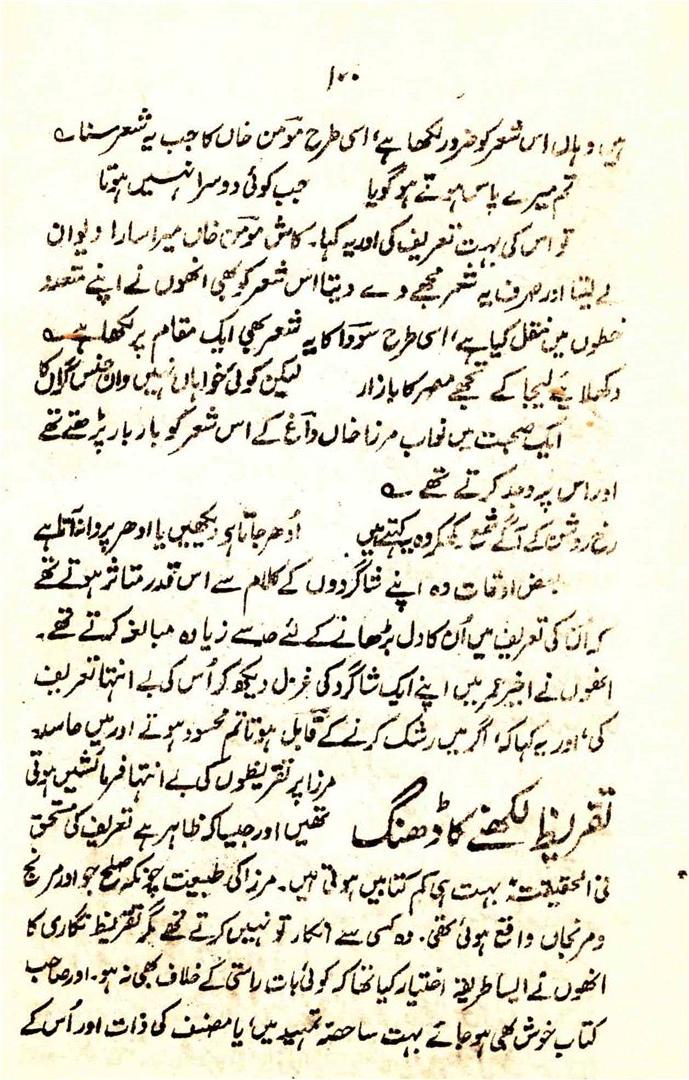 ۱۰۰
ہیں وہاں اس شعر کو ضرور لکھا ہے، اسی طرح مومن خاں کا جب یہ شعر سنا ؎
تم میرے پاس ہوتے ہو گویا جب کوئی دوسرا نہیں ہوتا
تو اس کی بہت تعریف کی اور یہ کہا۔ کاش مومن خاں میرا سارا دیوان
لے لیتا اور صرف یہ شعر مجھے دے دیتا اس شعر کو بھی انھوں نے اپنے متعدد
خطوں میں نقل کیا ہے، اسی طرح سودا کا یہ شعر بھی ایک مقام پر لکھا ہے ؎
دکھلائیے لیجا کے تجھے مصر کا بازار لیکن کوئی خواہاں نہیں واں جنس گراں کا
ایک صحبت میں نواب مرزا خاں داغ کے اس شعر کو بار بار پڑھتے تھے
اور اس پر وجد کرتے تھے ؎
رخ روشن کے آگے شمع رکھ کر وہ یہ کہتے ہیں اُدھر جاتا ہے دیکھیں یا ادھر پروانہ آتا ہے
بعض اوقات وہ اپنے شاگردوں کے کلام سے اس قدر متاثر ہوتے تھے
کہ اُن کی تعریف میں اُن کا دل بڑھانے کے لئے حد سے زیادہ مبالغہ کرتے تھے۔
انھوں نے اخیر عمر میں اپنے ایک شاگرد کی غزل دیکھ کر اُس کی بے انتہا تعریف
کی، اور یہ کہا کہ، اگر میں رشک کرنے کے قابل ہوتا تو تم محسود ہوتے اور میں حاسد۔
تقریظ لکھنے کا ڈھنگ
مرزا پر تقریظوں کی بے انتہا فرمائشیں ہوتی
تھیں اور جیسا کہ ظاہر ہے تعریف کی مستحق
فی الحقیقت بہت ہی کم کتابیں ہوتی ہیں۔ مرزا کی طبیعت چونکہ صلح جو اور مرنج
و مرنجاں واقع ہوئی تھی۔ وہ کسی سے انکار تو نہیں کرتے تھے مگر تقریظ نگاری کا
انھوں نے ایسا طریقہ اختیار کیا تھا کہ کوئی بات راستی کے خلاف بھی نہ ہو۔ اور صاحب
کتاب خوش بھی ہو جائے بہت سا حصہ تمہید میں، یا مصنف کی ذات اور اُس کے